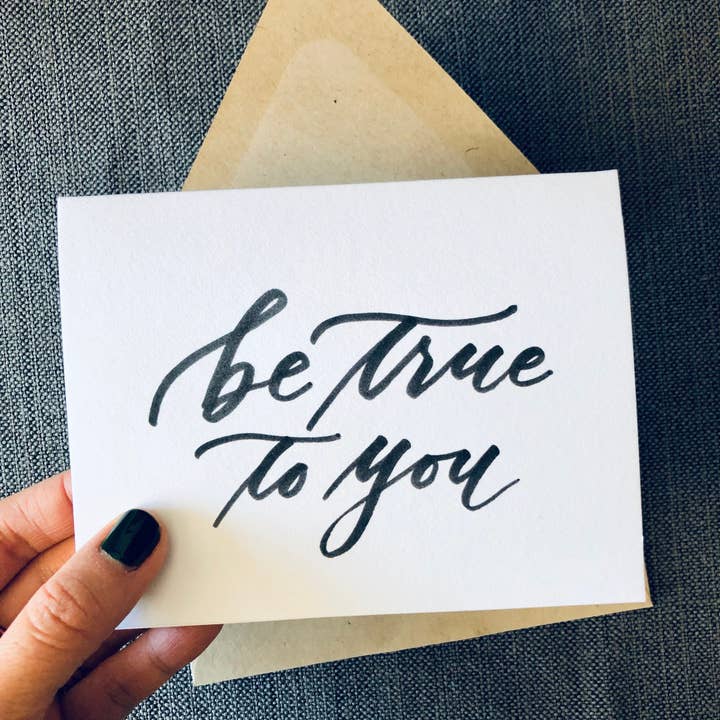 be true
to you